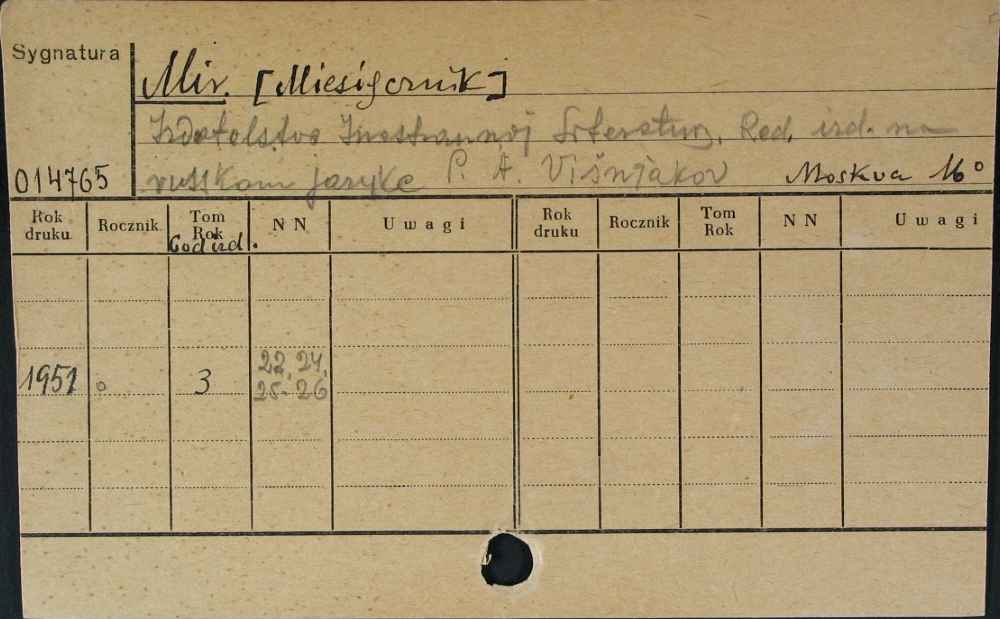 Sygnatura
Mir. [Miesięcznik]
Izdatelstvo Inostrannoj Literatury. Red. izd. na
014765 russkom jazyke P. A. Višnjakov Moskva 16°
Rok druku Rocznik Tom Rok God izd. NN Uwagi Rok druku Rocznik Tom Rok NN Uwagi
22, 24,
1951 3 25-26